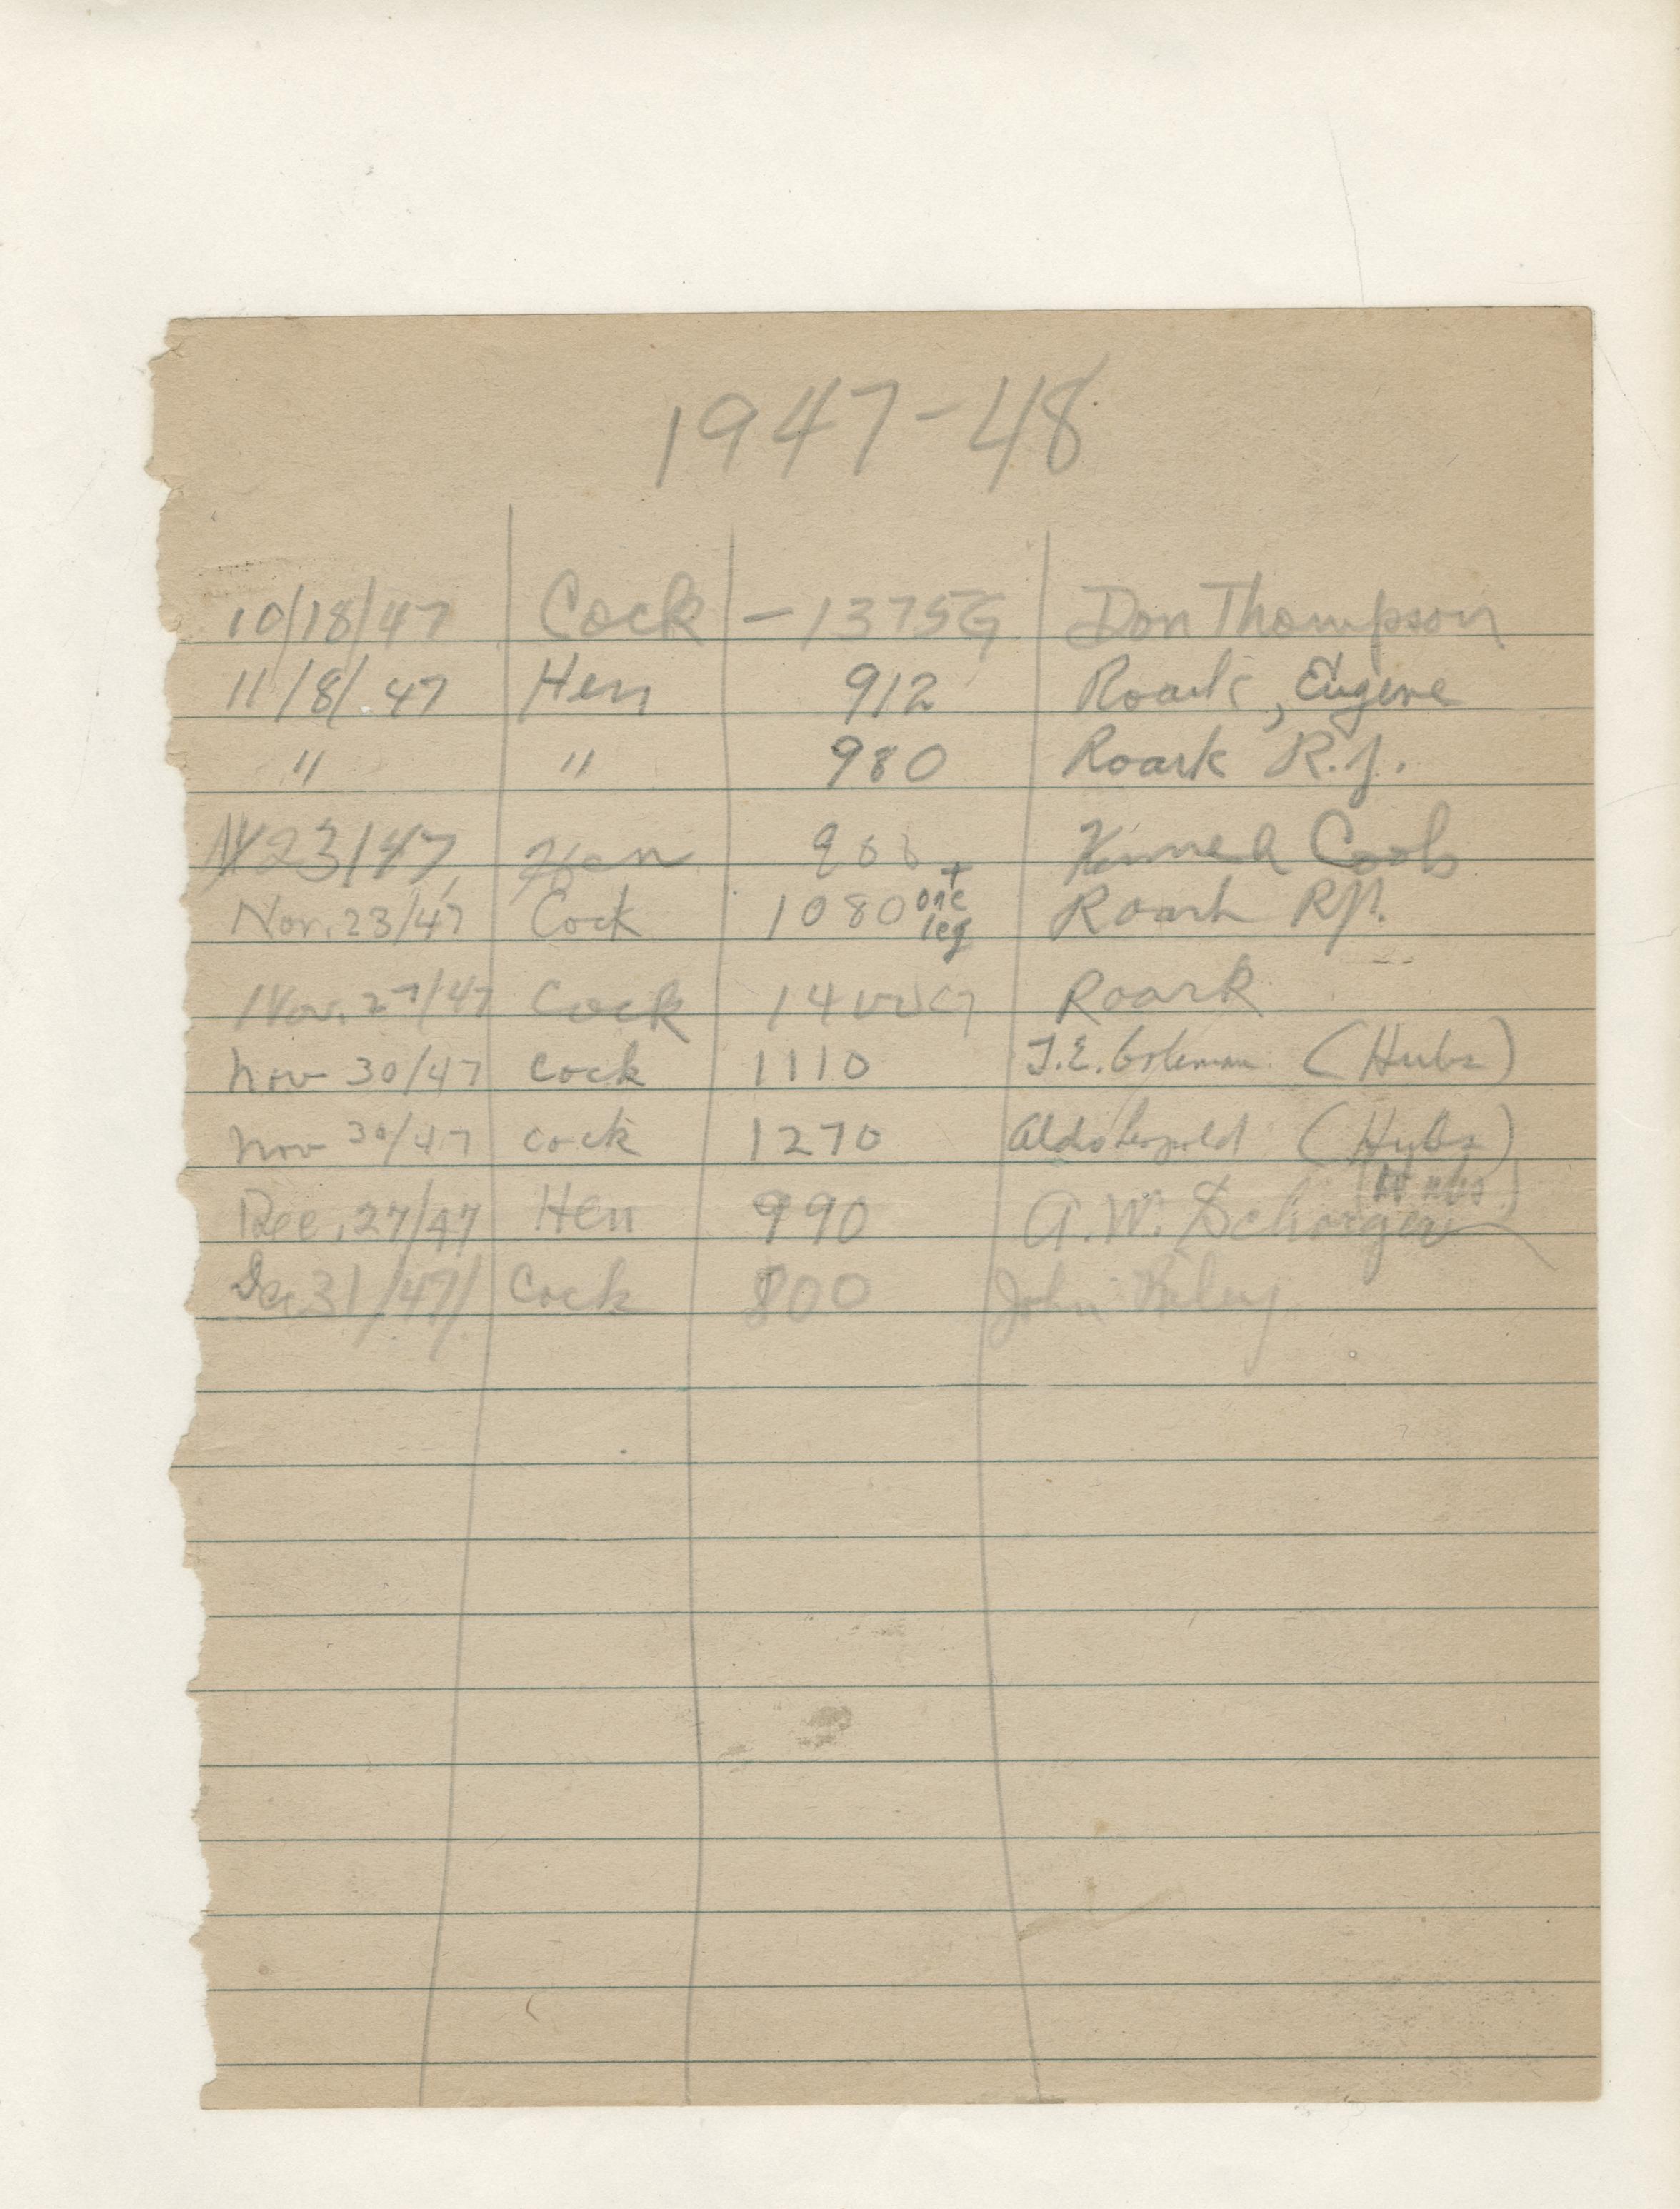 1947-48
10/18/47 Cock - 1375G Don Thompson
11/8/47 Hen 912 Roark, Eugene
" " 980 Roark R.J.
23/47 Hen +
Nov. 23/47 Cock 1080 one leg Roark RJ.
Nov. 27/47 Cock 1400G Roark
Nov 30/47 Cock 1110 T.E. Coleman (Hubs)
Nov 30/47 Cock 1270 Aldo Leopold (Hubs)
Dec. 27/47 Hen 990 A.W. Schorger (Hubs)
Dec 31/47 Cock 800 John Riley